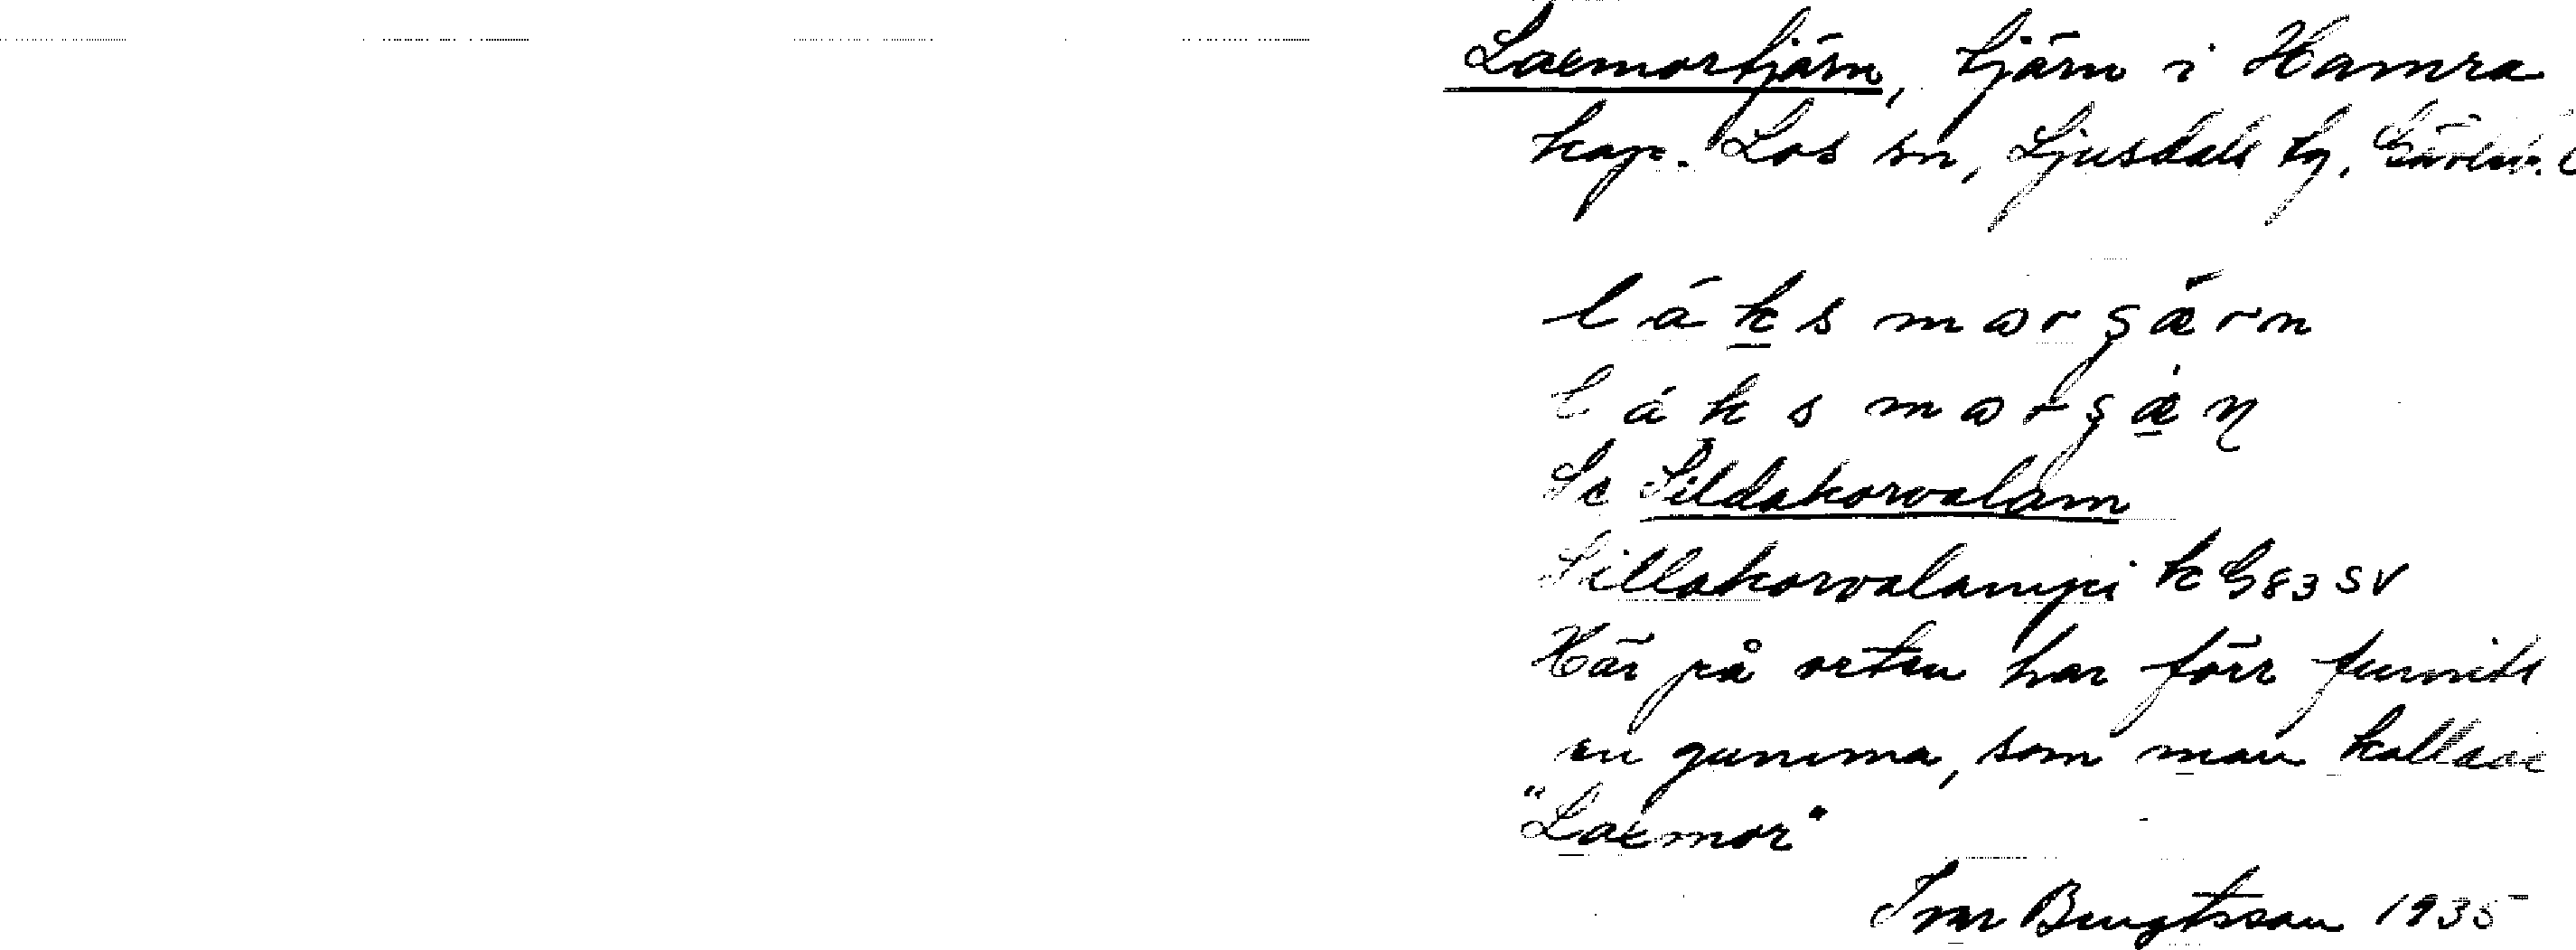 Laxmortjärn, tjärn i Hamra
kap. Los sn, Ljusdals tg, Gävleb. l
láksmorşärn
láksmorşän
Se Sildakorvalam
Sillakorvalampi k G83 SV
Här på orten har förr funnits
en gumma, som man kallade
"Laxmor"
Ivar Bengtsson 1935